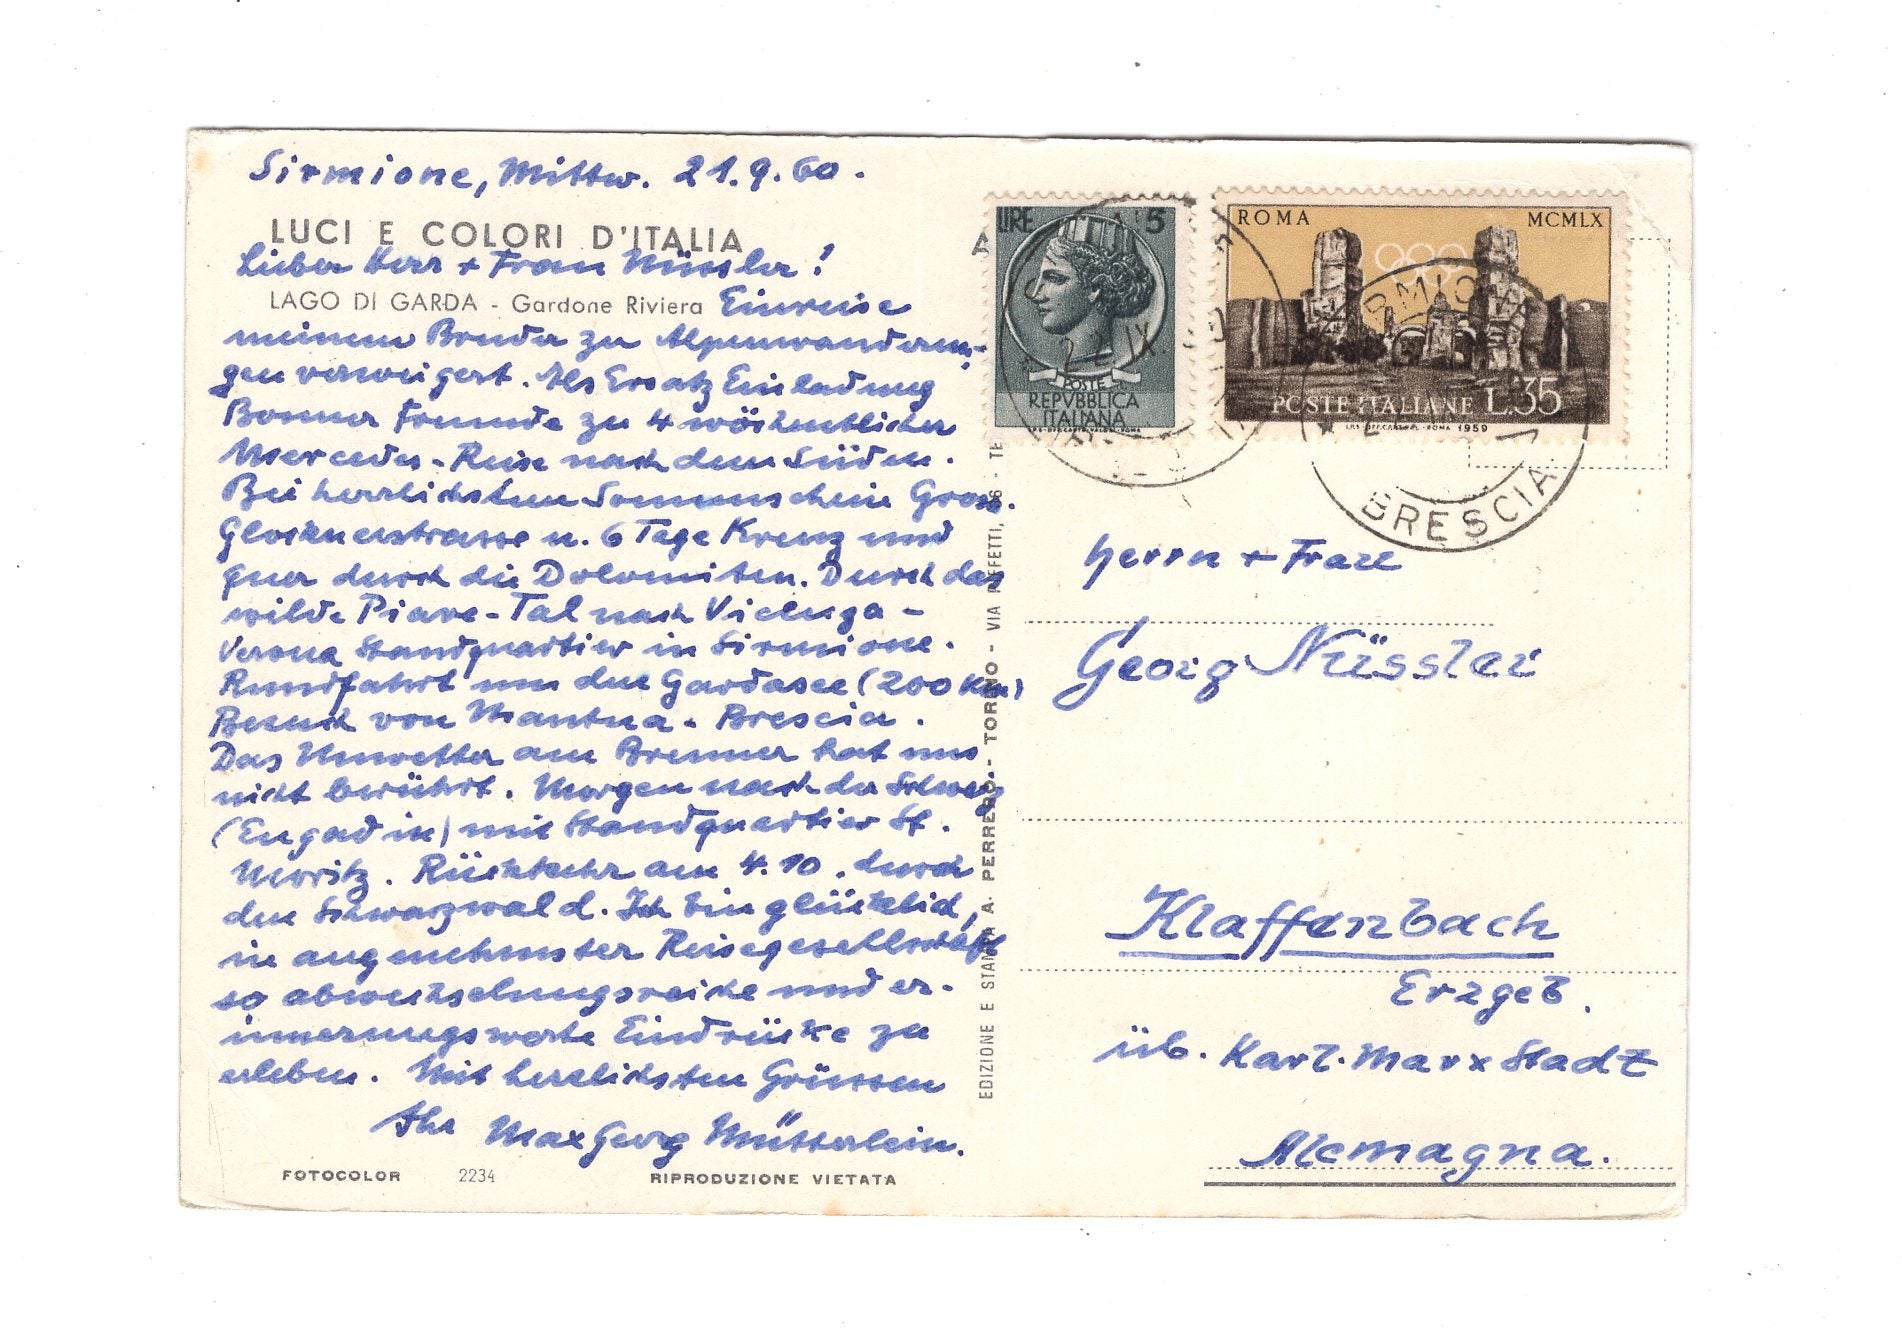 Sirmione, Mittw. 21.9.60.
LUCI E COLORI D'ITALIA
Lieber Herr + Frau Nüssler!
LAGO DI GARDA - Gardone Riviera
Einreise
meinem Bruder zu Alpenwanderun-
gen verweigert. Als Ersatz Einladung
Bonner Freunde zu 4 wöchentlicher
Mercedes-Reise nach dem Süden.
Bei herrlichstem Sonnenschein Gross.
Glocknerstrasse u. 6 Tage Kreuz und
quer durch die Dolomiten. Durch das
wilde Piave-Tal nach Vicenza -
Verona Standquartier in Sirmione.
Rundfahrt um den Gardasee (200 Km)
Besuch von Mantua - Brescia.
Das Unwetter am Brenner hat uns
nicht berührt. Morgen nach der Schweiz
(Engadin) mit Standquartier St.
Moritz. Rückkehr am 4.10. durch
den Schwarzwald. Ich bin glücklich,
in angenehmster Reisegesellschaft
so abwechselungsreiche und er-
innerungswerte Eindrücke zu
erleben. Mit herzlichsten Grüssen
Ihr Max Georg Mütterlein.
FOTOCOLOR 2234 RIPRODUZIONE VIETATA
EDIZIONE E STAMPA A. PERRERO - TORINO - VIA
LIRE 5
POSTE
REPVBBLICA
ITALIANA
ROMA MCMLX
POSTE ITALIANE L.35
1959
22 IX
SIRMIONE
BRESCIA
Herrn + Frau
Georg Nüssler
Klaffenbach
Erzgeb.
üb. Karl-Marx Stadt
Alemagna.